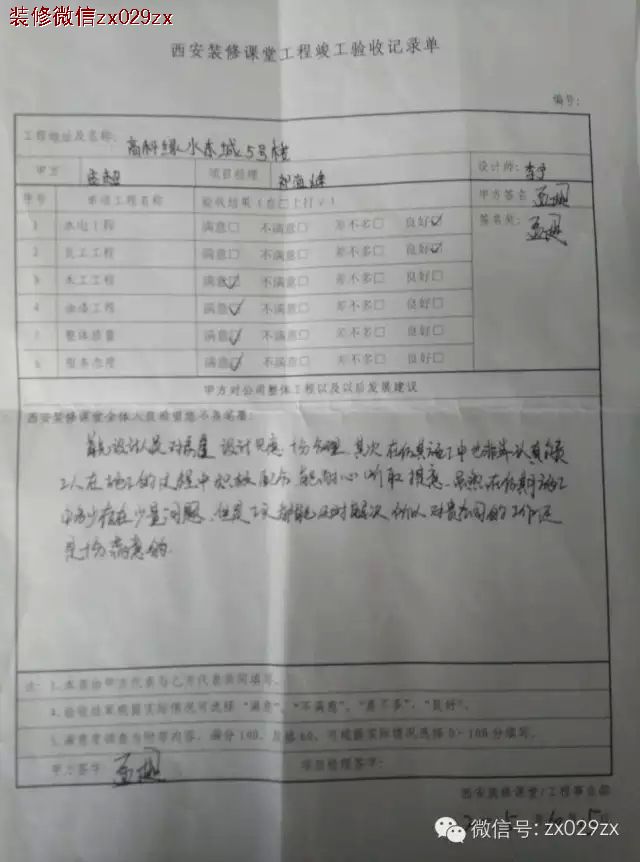 装修微信zx029zx
西安装修课堂工程竣工验收记录单
编号:
工程地址及名称: 高科绿水东城5号楼
甲方 项目经理 设计师:
序号 单项工程名称 验收结果(在□上打√) 甲方签名
1 水电工程 满意□ 不满意□ 差不多□ 良好☑ 签名处:
2 瓦工工程 满意□ 不满意□ 差不多□ 良好☑
3 木工工程 满意☑ 不满意□ 差不多□ 良好□
4 油漆工程 满意☑ 不满意□ 差不多□ 良好□
5 整体质量 满意☑ 不满意□ 差不多□ 良好□
6 服务态度 满意☑ 不满意□ 差不多□ 良好□
甲方对公司整体工程以及以后发展建议
西安装修课堂全体人员希望您不吝笔墨:
首先设计人员对房屋设计 十分合理.其次在 施工中也非常认真负责
工人在施工的过程中积极配合,能耐心听取 意见.虽然在 期施工
中 少存在少量问题,但是 都能及时解决 所以对贵公司的工作还
是十分满意的.
注: 1.本表由甲方代表与乙方代表共同填写.
2.验收结果根据实际情况可选择“满意”,“不满意”,“差不多”,“良好”.
3.满意度调查为附带内容,满分100,及格60,可根据实际情况选择0-100分填写.
甲方签字: 项目经理签字:
西安装修课堂/工程事业部
微信号: zx029zx